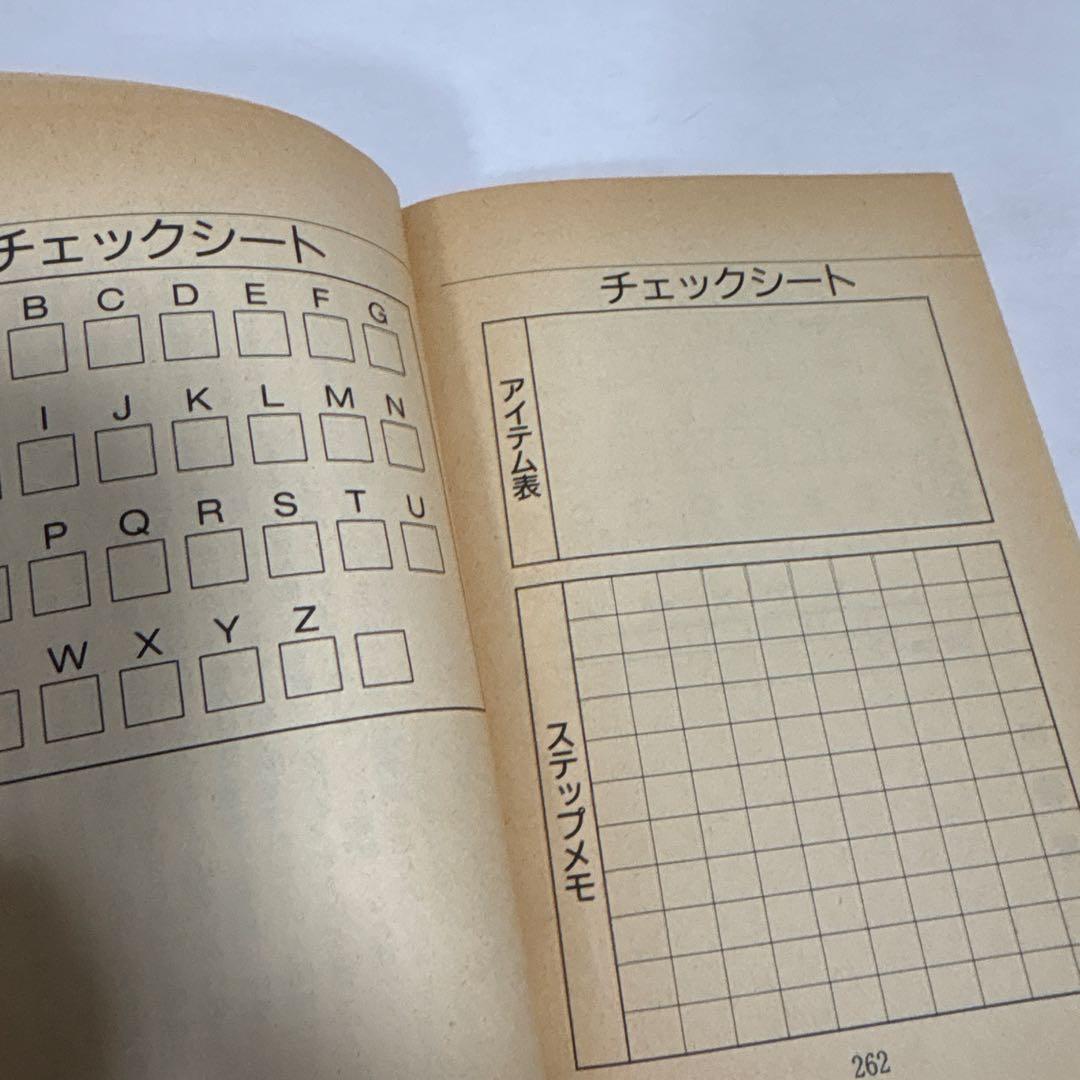 チェックシート
B C D E F G
I J K L M N
P Q R S T U
W X Y Z
チェックシート
アイテム表
ステップメモ
262